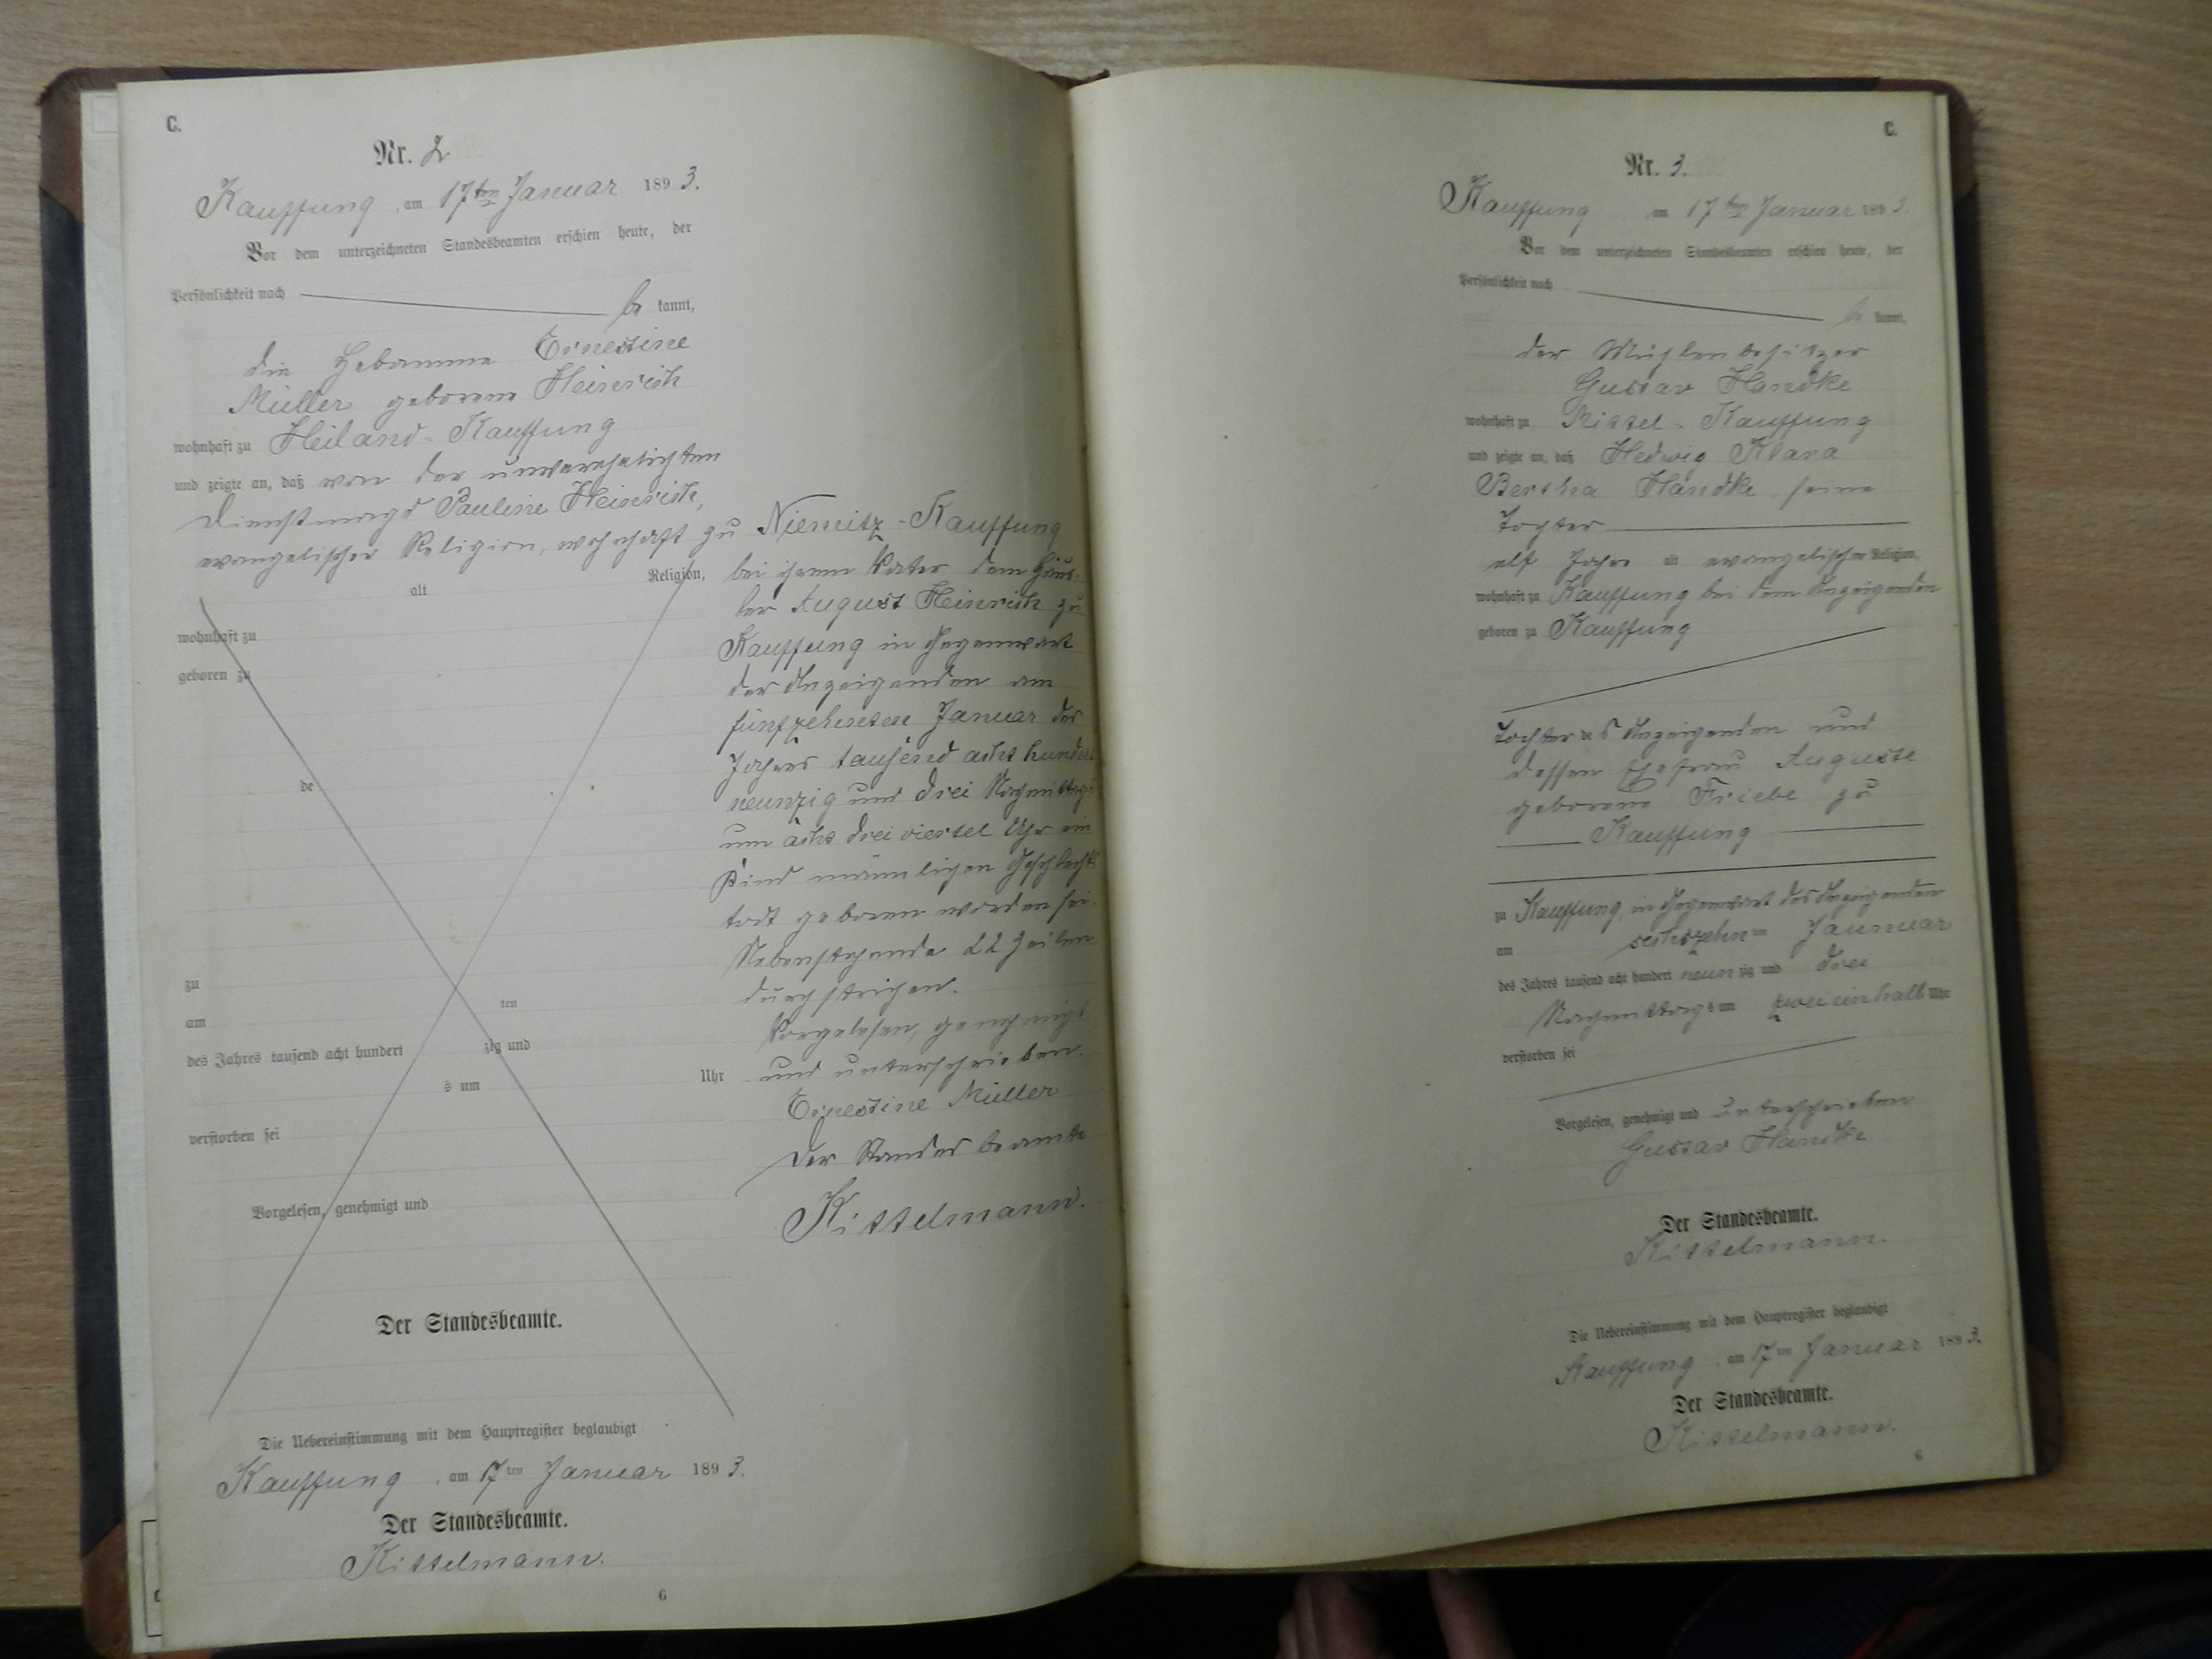 C.
Nr. 2
Kauffung, am 17ten Januar 1893.
Vor dem unterzeichneten Standesbeamten erschien heute, der
Persönlichkeit nach
be kannt,
die Hebamme Ernestine
Müller geborene Heinrich
wohnhaft zu Heiland-Kauffung
und zeigte an, daß von der unverehelichten
Dienstmagd Pauline Heinrich,
evangelischer Religion, wohnhaft zu Niemitz-Kauffung
alt Religion,
wohnhaft zu
geboren zu
de
zu
am ten
des Jahres tausend acht hundert zig und
s um Uhr
verstorben sei
Vorgelesen, genehmigt und
Der Standesbeamte.
bei ihrem Vater dem Häus-
ler August Heinrich zu
Kauffung in Gegenwart
der Anzeigenden am
fünfzehnten Januar des
Jahres tausend acht hundert
neunzig und drei Nachmittags
um acht drei viertel Uhr ein
Kind männlichen Geschlechts
todt geboren worden sei.
Nebenstehende 22 Zeilen
durchstrichen.
Vorgelesen, genehmigt
und unterschrieben.
Ernestine Müller
Der Standesbeamte
Kittelmann.
Die Uebereinstimmung mit dem Hauptregister beglaubigt
Kauffung, am 17ten Januar 1893.
Der Standesbeamte.
Kittelmann.
6
C.
Nr. 3.
Kauffung, am 17ten Januar 1893.
Vor dem unterzeichneten Standesbeamten erschien heute, der
Persönlichkeit nach
be kannt,
der Mühlenbesitzer
Gustav Handke
wohnhaft zu Mittel-Kauffung
und zeigte an, daß Hedwig Klara
Bertha Handke, seine
Tochter
elf Jahre alt evangelischer Religion,
wohnhaft zu Kauffung bei dem Anzeigenden
geboren zu Kauffung
Tochter des Anzeigenden und
dessen Ehefrau Auguste
geborene Friebe zu
Kauffung
zu Kauffung, in Gegenwart des Anzeigenden
am sechszehnten Januar
des Jahres tausend acht hundert neunzig und drei
Nachmittags um zwei einhalb Uhr
verstorben sei
Vorgelesen, genehmigt und unterschrieben
Gustav Handke
Der Standesbeamte.
Kittelmann.
Die Uebereinstimmung mit dem Hauptregister beglaubigt
Kauffung, am 17ten Januar 1893.
Der Standesbeamte.
Kittelmann.
6